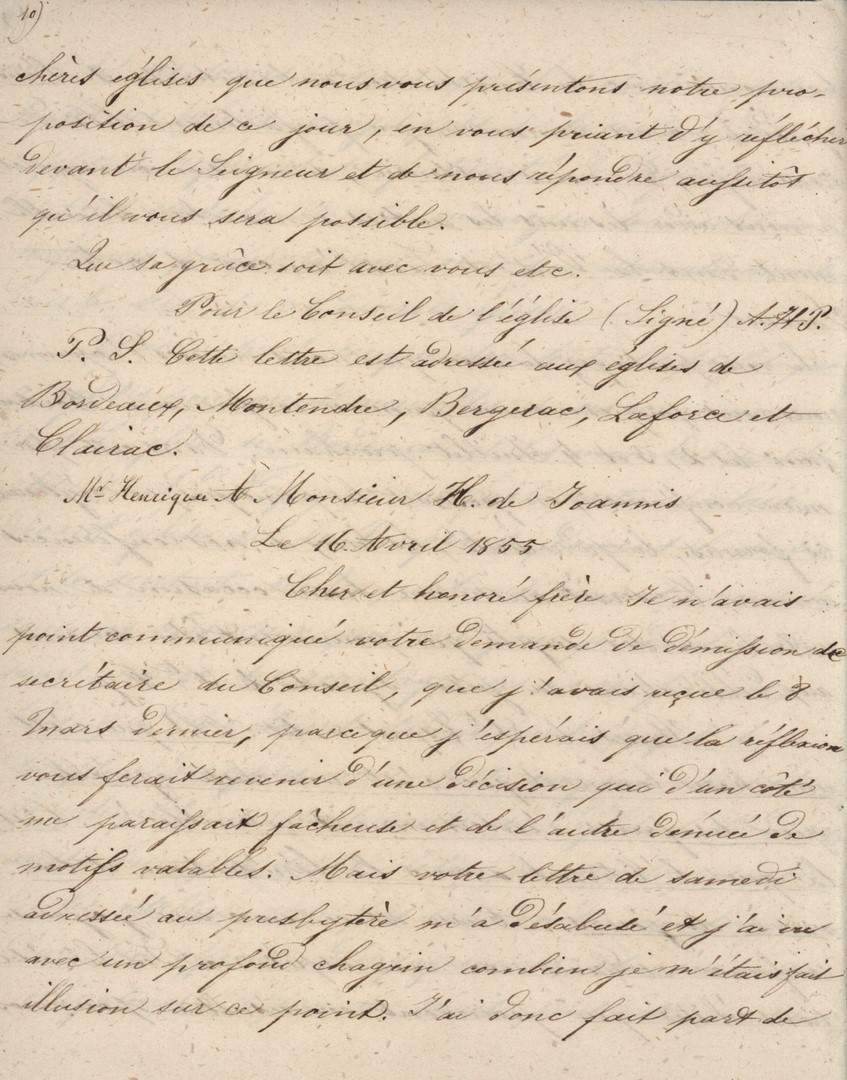 10)
chères églises que nous vous présentons notre pro-
position de ce jour, en vous priant d'y réfléchir
devant le Seigneur et de nous répondre aussitôt
qu'il vous sera possible.
Que sa grâce soit avec vous etc.
Pour le Conseil de l'église (Signé) A. H. P.
P. S. Cette lettre est adressée aux églises de
Bordeaux, Montendre, Bergerac, Laforce et
Clairac.
Mr. Henrique À Monsieur H. de Joannis
Le 16 Avril 1855
Cher et honoré frère Je n'avais
point communiqué votre demande de démission de
secrétaire du Conseil, que j'avais reçue le 8
Mars dernier, parceque j'espérais que la réflexion
vous ferait revenir d'une décision qui d'un côté
me paraissait fâcheuse et de l'autre dénuée de
motifs valables. Mais votre lettre de samedi
adressée au presbytère m'a désabusé et j'ai vu
avec un profond chagrin combien je m'étais fait
illusion sur ce point. J'ai donc fait part de